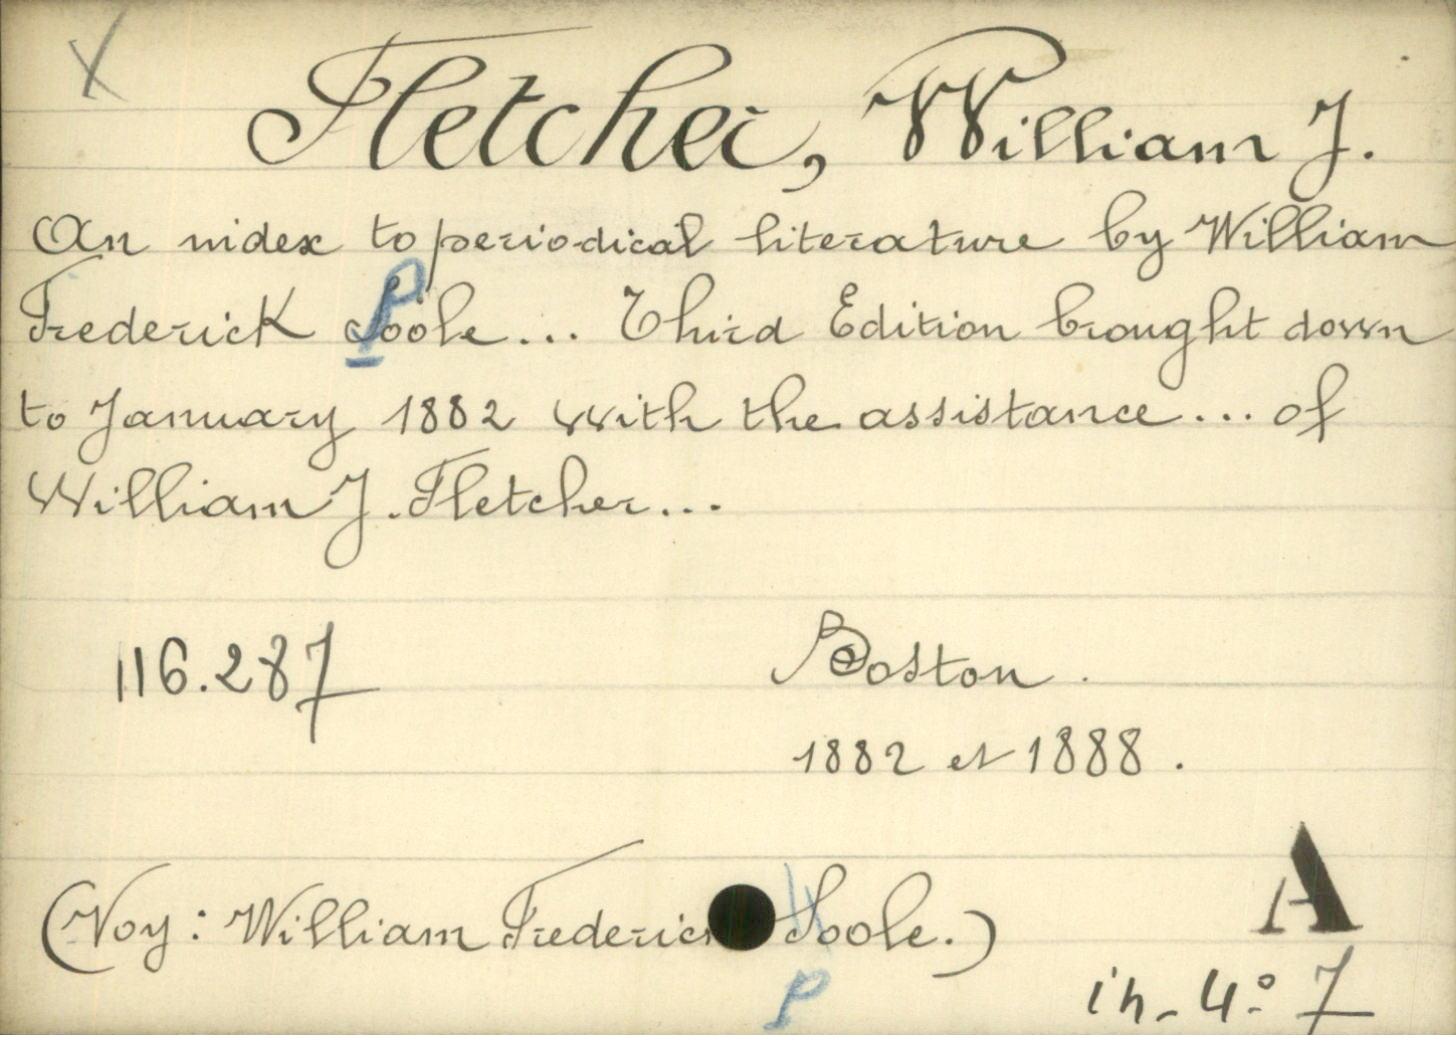 X
Fletcher, William J.
An index to periodical literature by William
Frederick Poole... Third Edition brought down
to January 1882 with the assistance... of
William J. Fletcher...
116.287
Boston.
1882 et 1888.
A
(Voy: William Frederick Soole.)
P
in-4º 7